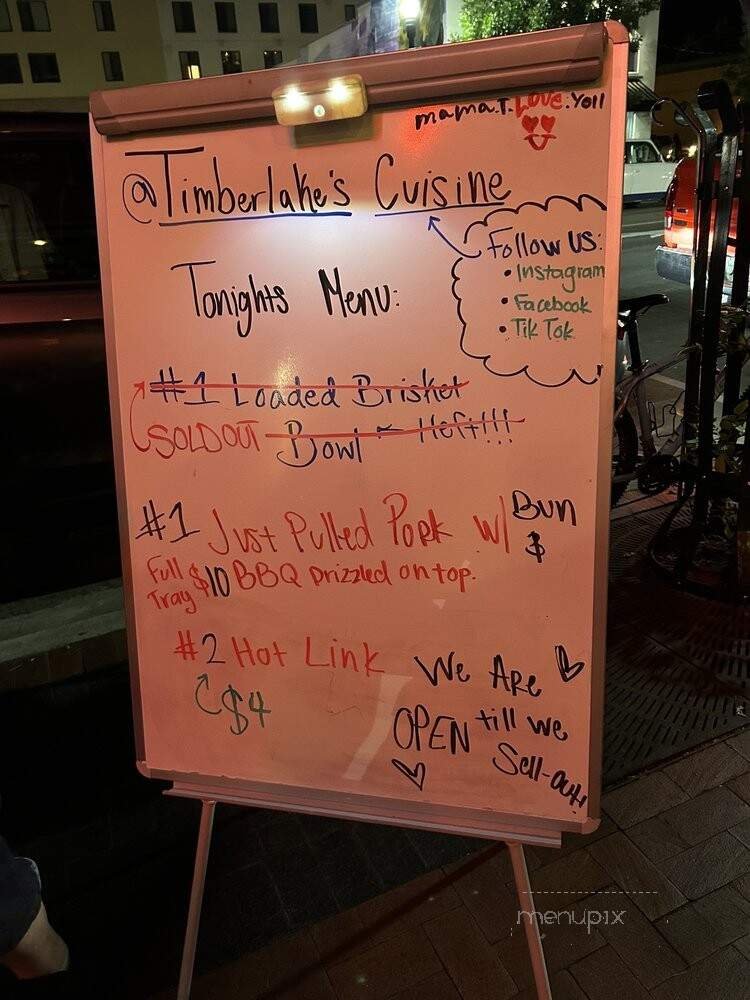 mama.T.Love.Yall
@Timberlake's Cuisine
Follow US:
• Instagram
• Facebook
• Tik Tok
Tonights Menu:
#1 Loaded Brisket
SOLDOUT Bowl ~ 1left!!!
#1 Just Pulled Pork w/ Bun
$
Full Tray $10 BBQ Drizzled on top.
#2 Hot Link
$4
We Are
OPEN till we
Sell-out!
menupix